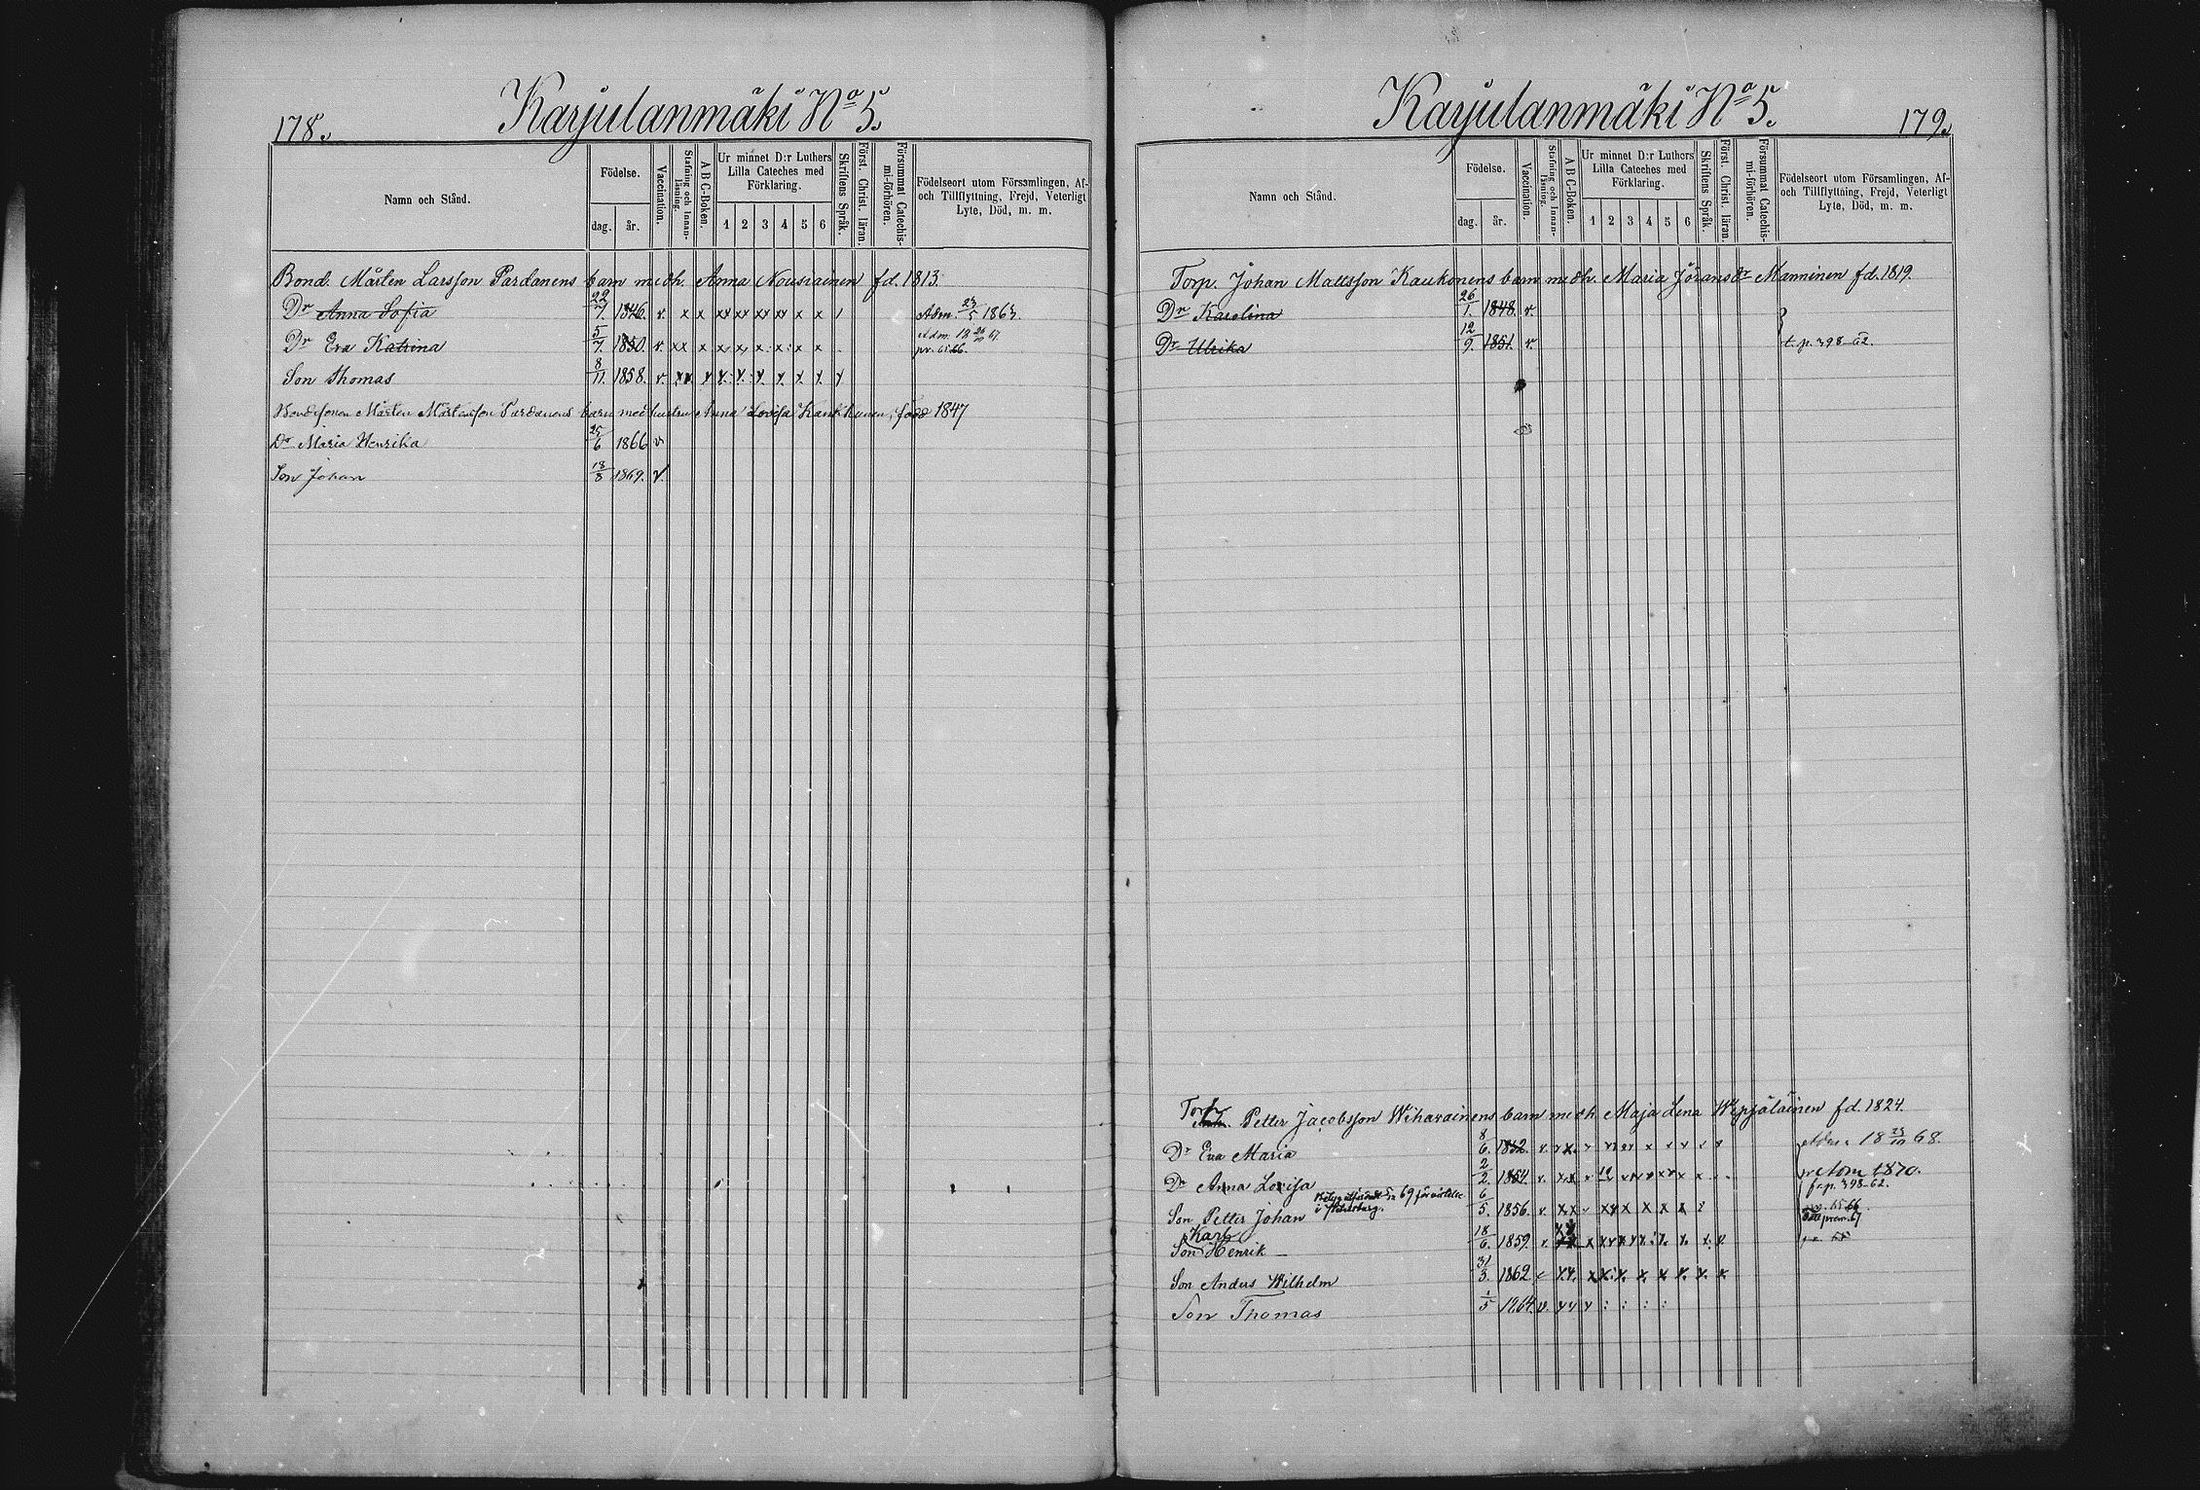 178.
Karjulanmäki No 5.
Namn och Stånd.
Födelse.
dag.
år.
Vaccination.
Stafning och Innan-läsning.
A B C-Boken.
Ur minnet D:r Luthers
Lilla Cateches med
Förklaring.
1 2 3 4 5 6
Skriftens Språk.
Först. Christ. läran.
Försummat Catechis-mi-förhören.
Födelseort utom Församlingen, Af-
och Tillflyttning, Frejd, Veterligt
Lyte, Död, m. m.
Bond. Mårten Larsson Pardanens barn med h. Anna Nousiainen fd. 1813.
Dr Anna Sofia 22/7. 1846. v. x x xx xx xx x x / Adm. 1863.
Dr Eva Katrina 5/7. 1850. v. xx x x x x x x x Adm. 67.
Son Thomas 8/11. 1858. v.
Bondesonen Mårten Mårtensson Pardanens barn med hustru Anna Lovisa Kaukkunen, född 1847
Dr Maria Henrika 25/6 1866 v
Son Johan 18/8 1869. v.
Karjulanmäki No 5.
179.
Namn och Stånd.
Födelse.
dag.
år.
Vaccination.
Stafning och Innan-läsning.
A B C-Boken.
Ur minnet D:r Luthers
Lilla Cateches med
Förklaring.
1 2 3 4 5 6
Skriftens Språk.
Först. Christ. läran.
Försummat Catechis-mi-förhören.
Födelseort utom Församlingen, Af-
och Tillflyttning, Frejd, Veterligt
Lyte, Död, m. m.
Torp. Johan Mattsson Kaukonens barn med h. Maria Jöransdr Manninen fd. 1819.
Dr Karolina 26/1. 1848. v.
Dr Ulrika 12/9. 1851. v. t. p. 398-62.
Torp. Petter Jacobsson Wihavainens barn med h. Maja Lena Wepsäläinen fd. 1824.
Dr Eva Maria 8/6. 1852. v. Adm. 18 68.
Dr Anna Lovisa 2/2. 1854. v. Adm 1870.
fr. p. 398-62.
Son Petter Johan 6/5. 1856. v.
Karl
Son Henrik 18/6. 1859. v.
Son Anders Wilhelm 31/3. 1862
Son Thomas 1/5 1864. v.